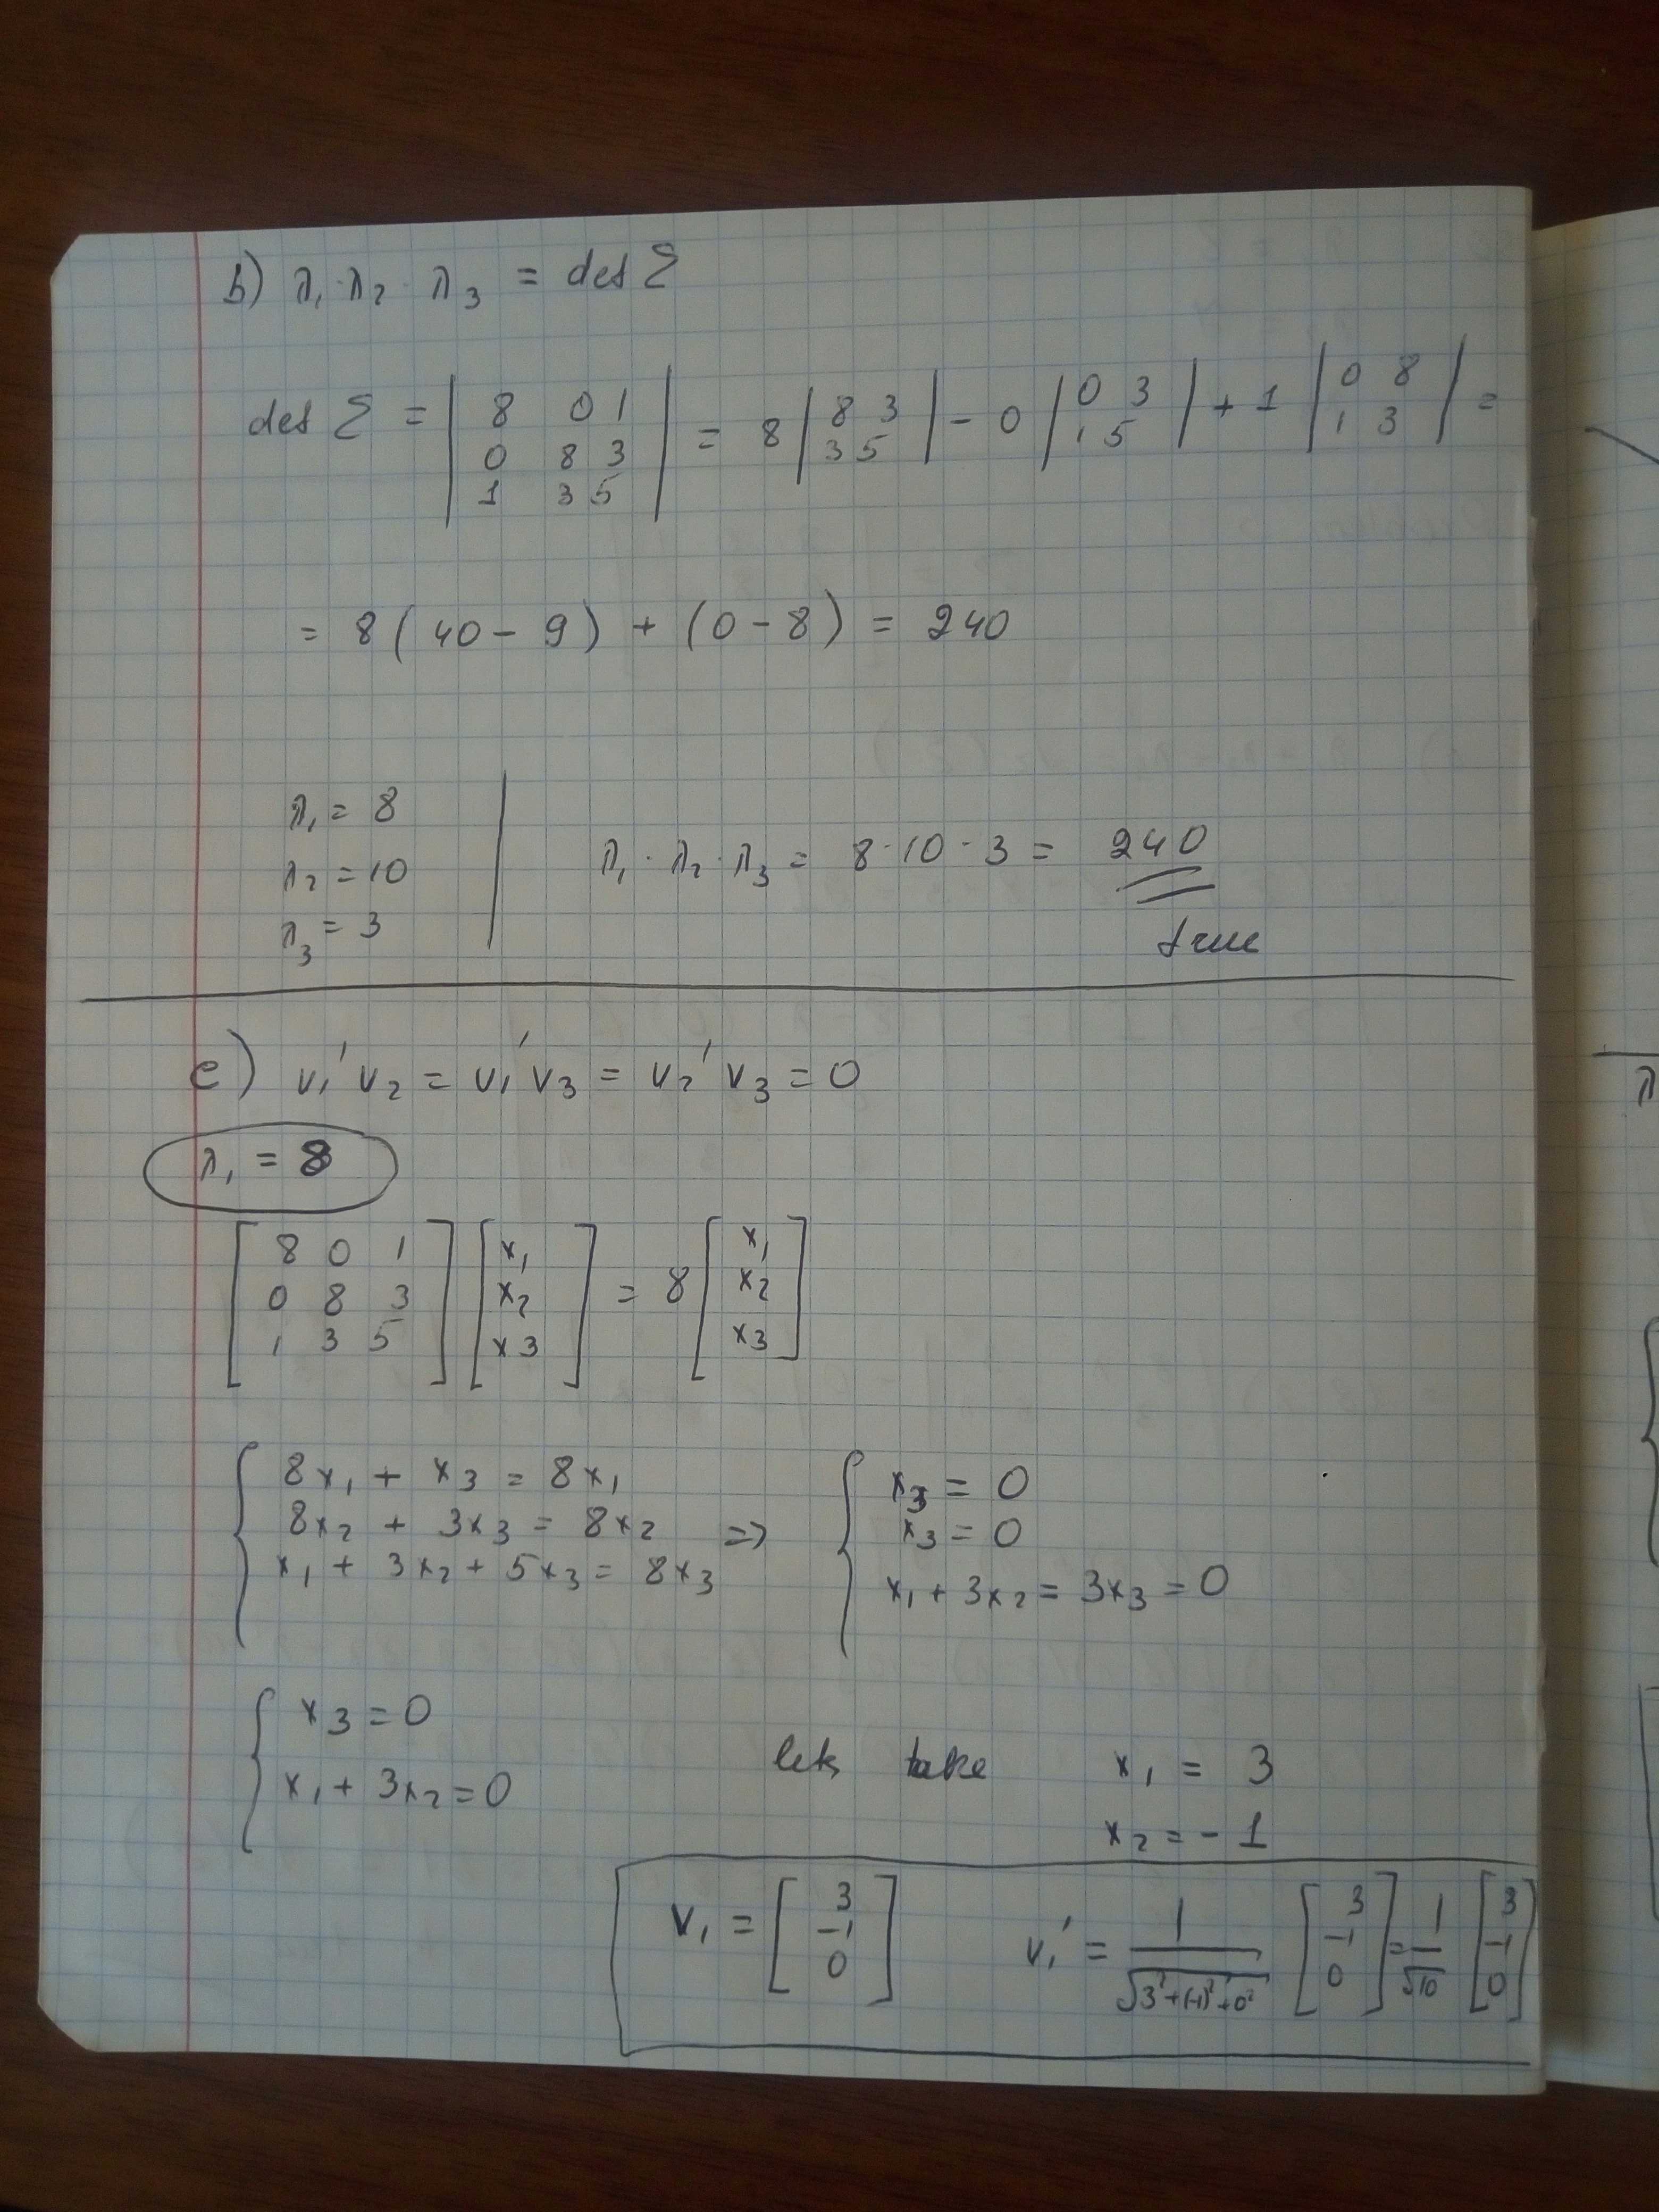 b) λ₁·λ₂·λ₃ = det Σ
det Σ = | 8 0 1 | = 8 | 8 3 | - 0 | 0 3 | + 1 | 0 8 | =
| 0 8 3 | | 3 5 | | 1 5 | | 1 3 |
| 1 3 5 |
= 8(40-9) + (0-8) = 240
λ₁ = 8
λ₂ = 10
λ₃ = 3
λ₁·λ₂·λ₃ = 8·10·3 = 240
true
c) v₁'v₂ = v₁'v₃ = v₂'v₃ = 0
λ₁ = 8
[ 8 0 1 ] [ x₁ ] = 8 [ x₁ ]
[ 0 8 3 ] [ x₂ ] [ x₂ ]
[ 1 3 5 ] [ x₃ ] [ x₃ ]
{ 8x₁ + x₃ = 8x₁
8x₂ + 3x₃ = 8x₂ =>
x₁ + 3x₂ + 5x₃ = 8x₃
{ x₃ = 0
x₃ = 0
x₁ + 3x₂ = 3x₃ = 0
{ x₃ = 0
x₁ + 3x₂ = 0
lets take x₁ = 3
x₂ = -1
v₁ = [ 3 -1 0 ] v₁' = 1/√(3²+(-1)²+0²) [ 3 -1 0 ] = 1/√10 [ 3 -1 0 ]
λ